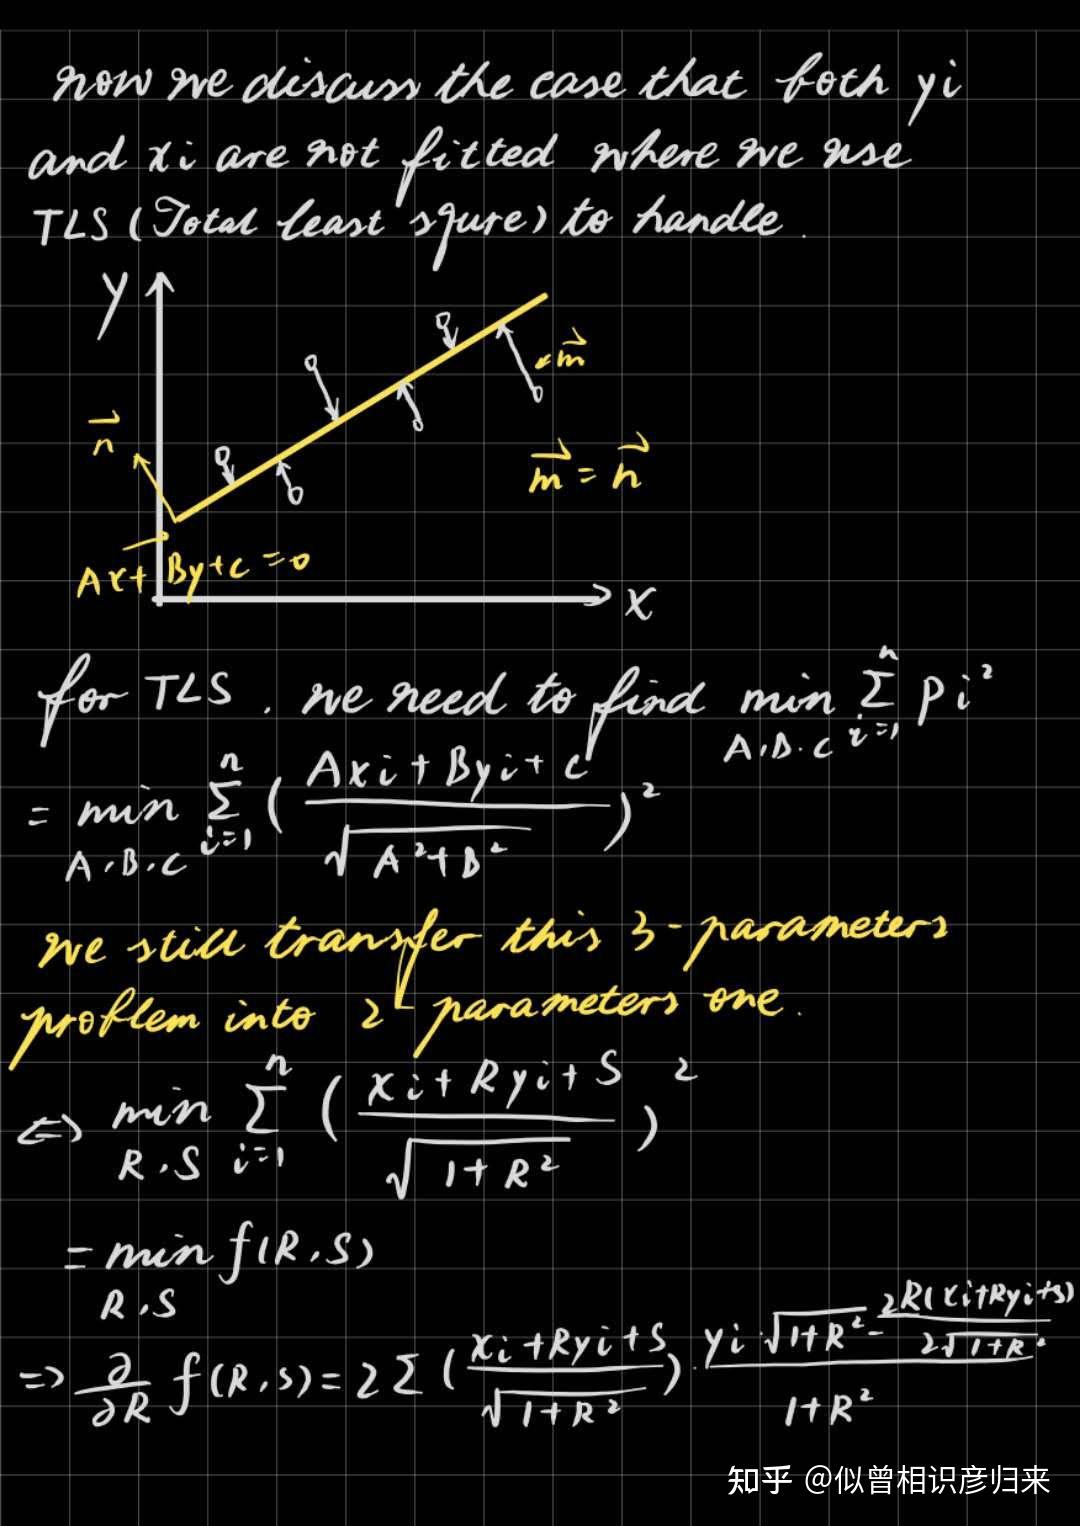 now we discuss the case that both yi
and xi are not fitted where we use
TLS (Total least squre) to handle.
y
n⃗
m⃗
m⃗ = n⃗
Ax+By+c=0
x
for TLS. we need to find min_{A,B,C} Σ_{i=1}^{n} Pi²
= min_{A,B,C} Σ_{i=1}^{n} ( (Axi+Byi+c) / √(A²+B²) )²
we still transfer this 3-parameters
problem into 2-parameters one.
<=> min_{R,S} Σ_{i=1}^{n} ( (xi+Ryi+S) / √(1+R²) )²
= min_{R,S} f(R,S)
=> ∂/∂R f(R,S) = 2Σ ( (xi+Ryi+S) / √(1+R²) ) · ( yi·√(1+R²) - 2R(xi+Ryi+S) / 2√(1+R²) ) / (1+R²)
知乎 @似曾相识彦归来